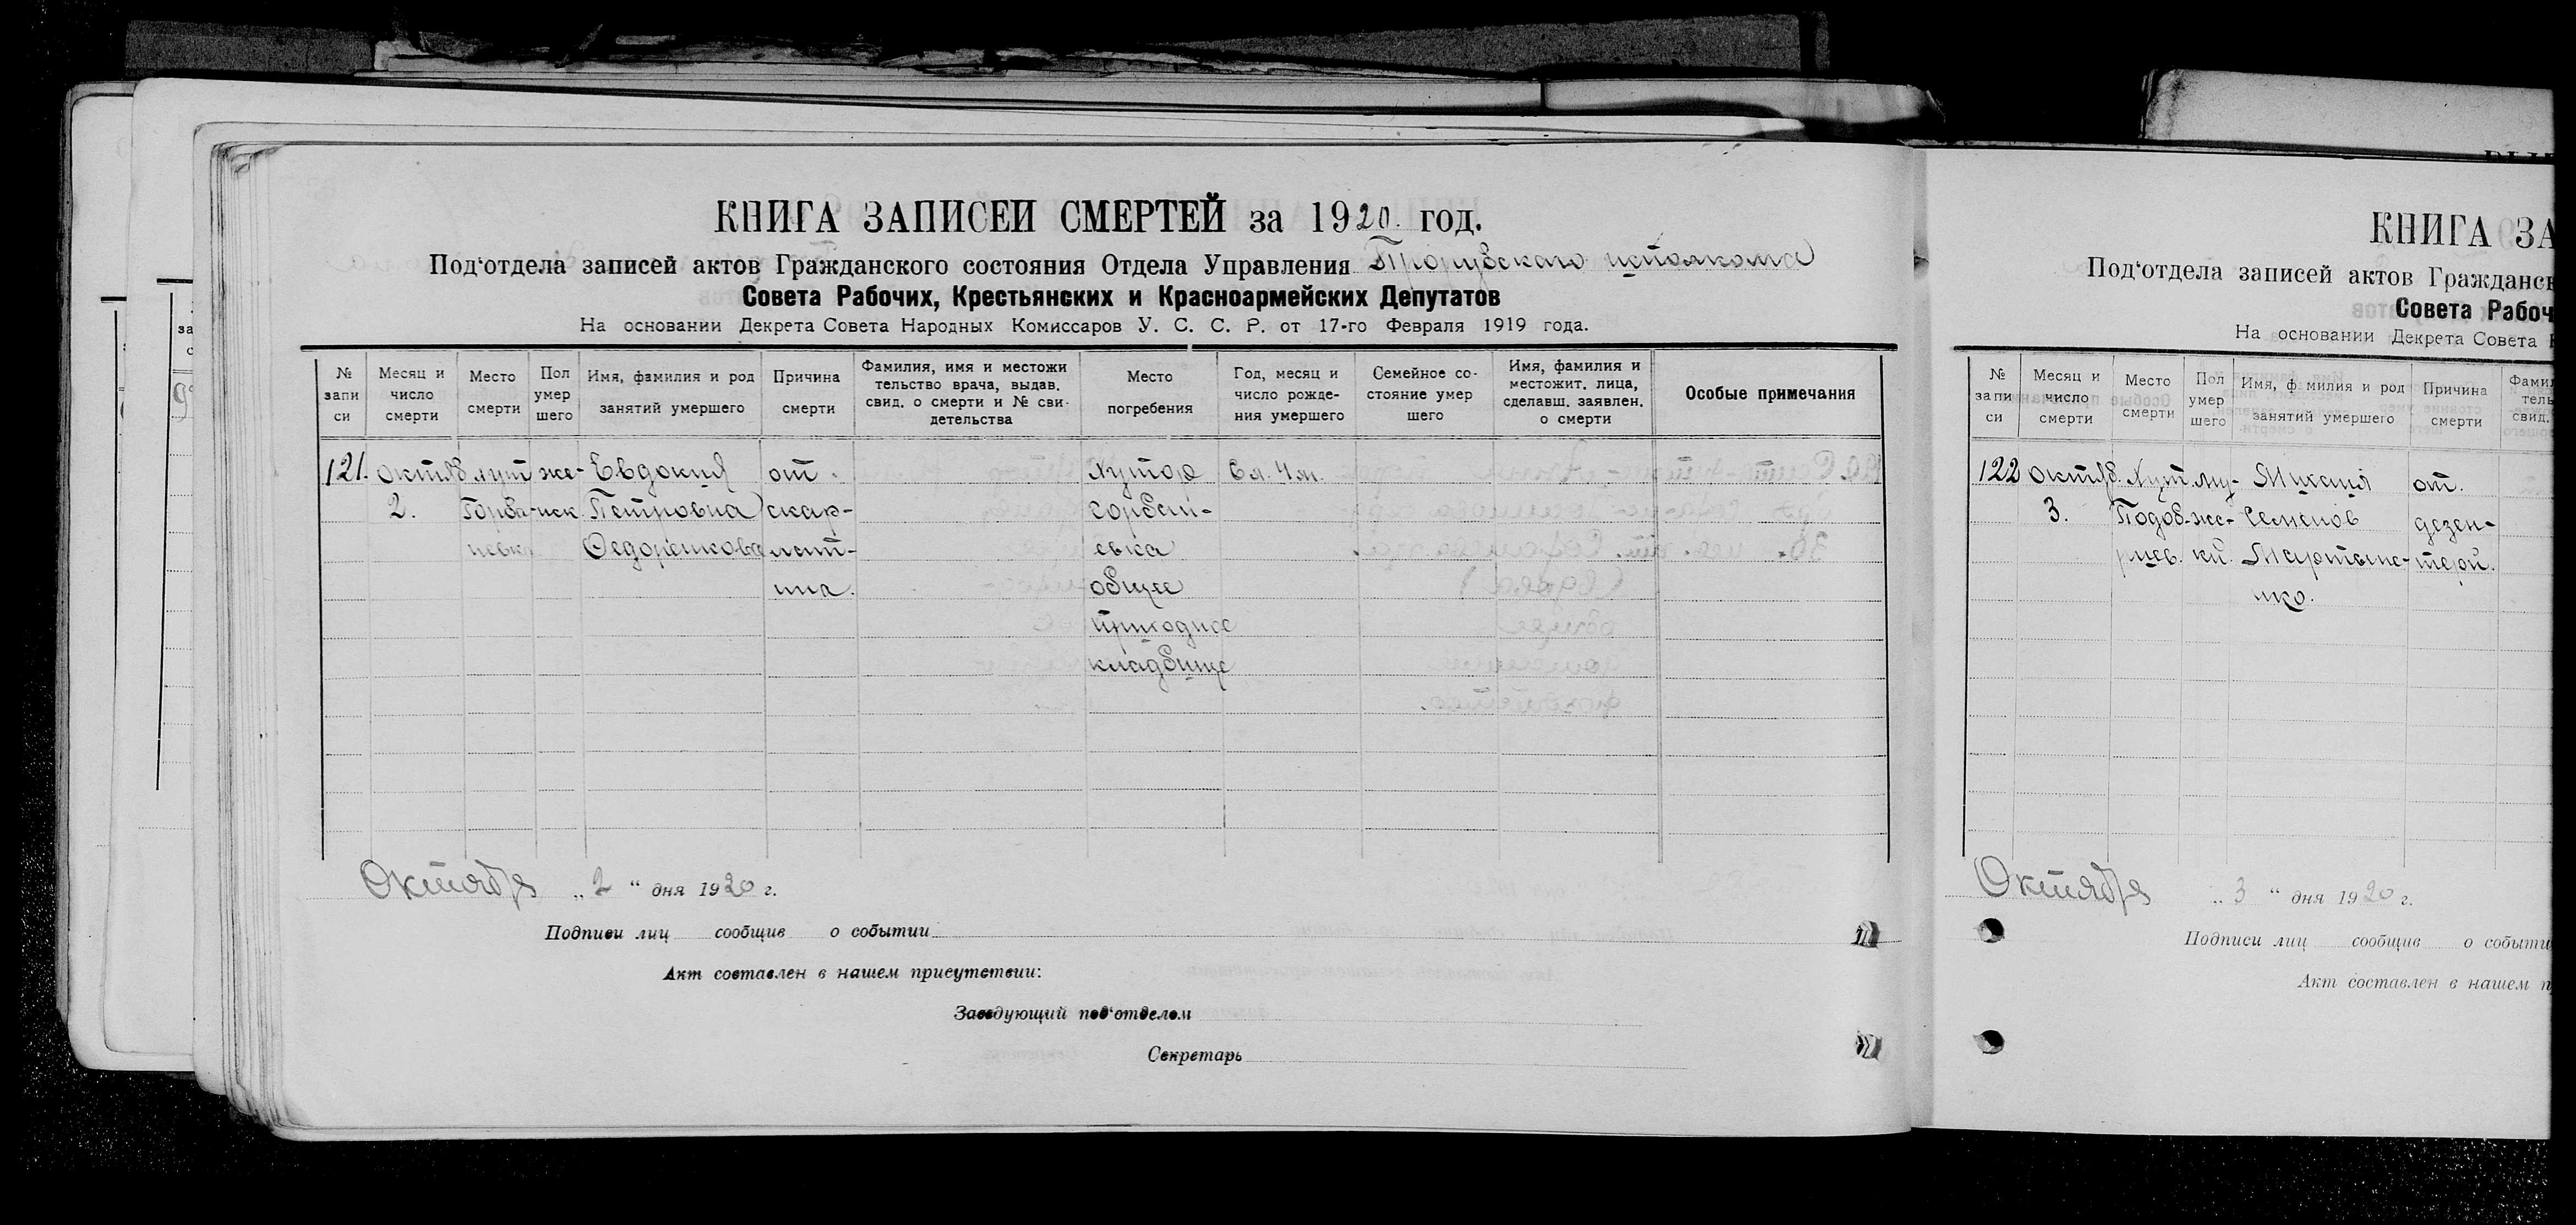 КНИГА ЗАПИСЕЙ СМЕРТЕЙ за 1920. год.
Под‘отдела записей актов Гражданского состояния Отдела Управления исполкома
Совета Рабочих, Крестьянских и Красноармейских Депутатов
На основании Декрета Совета Народных Комиссаров У. С. С. Р. от 17-го Февраля 1919 года.
№ запи си
Месяц и число смерти
Место смерти
Пол умер шего
Имя, фамилия и род занятий умершего
Причина смерти
Фамилия, имя и местожи тельство врача, выдав. свид. о смерти и № сви- детельства
Место погребения
Год, месяц и число рожде- ния умершего
Семейное со- стояние умер шего
Имя, фамилия и местожит. лица, сделавш. заявлен. о смерти
Особые примечания
121. октяб хут же- Евдокия от Хутор 6 л. 4 м.
2. Горба- нск. Петровна скар- Горбан-
невка Федоренкова лат- евка
ина. общее
приходское
кладбище
Октября „ 2 “ дня 1920 г.
Подписи лиц сообщив о событии
Акт составлен в нашем присутствии:
Заведующий под‘отделом
Секретарь
КНИГА ЗА
Под‘отдела записей актов Гражданск
Совета Рабоч
На основании Декрета Совета
№ запи си
Месяц и число смерти
Место смерти
Пол умер шего
Имя, ф милия и род занятий умершего
Причина смерти
Фамил тель свид.
122 октяб. Хут. му- от.
3. же- Семенов дезен-
кий. Мартыне- терӣ.
нко.
Октября „ 3 “ дня 1920 г.
Подписи лиц сообщив о событи
Акт составлен в нашем п